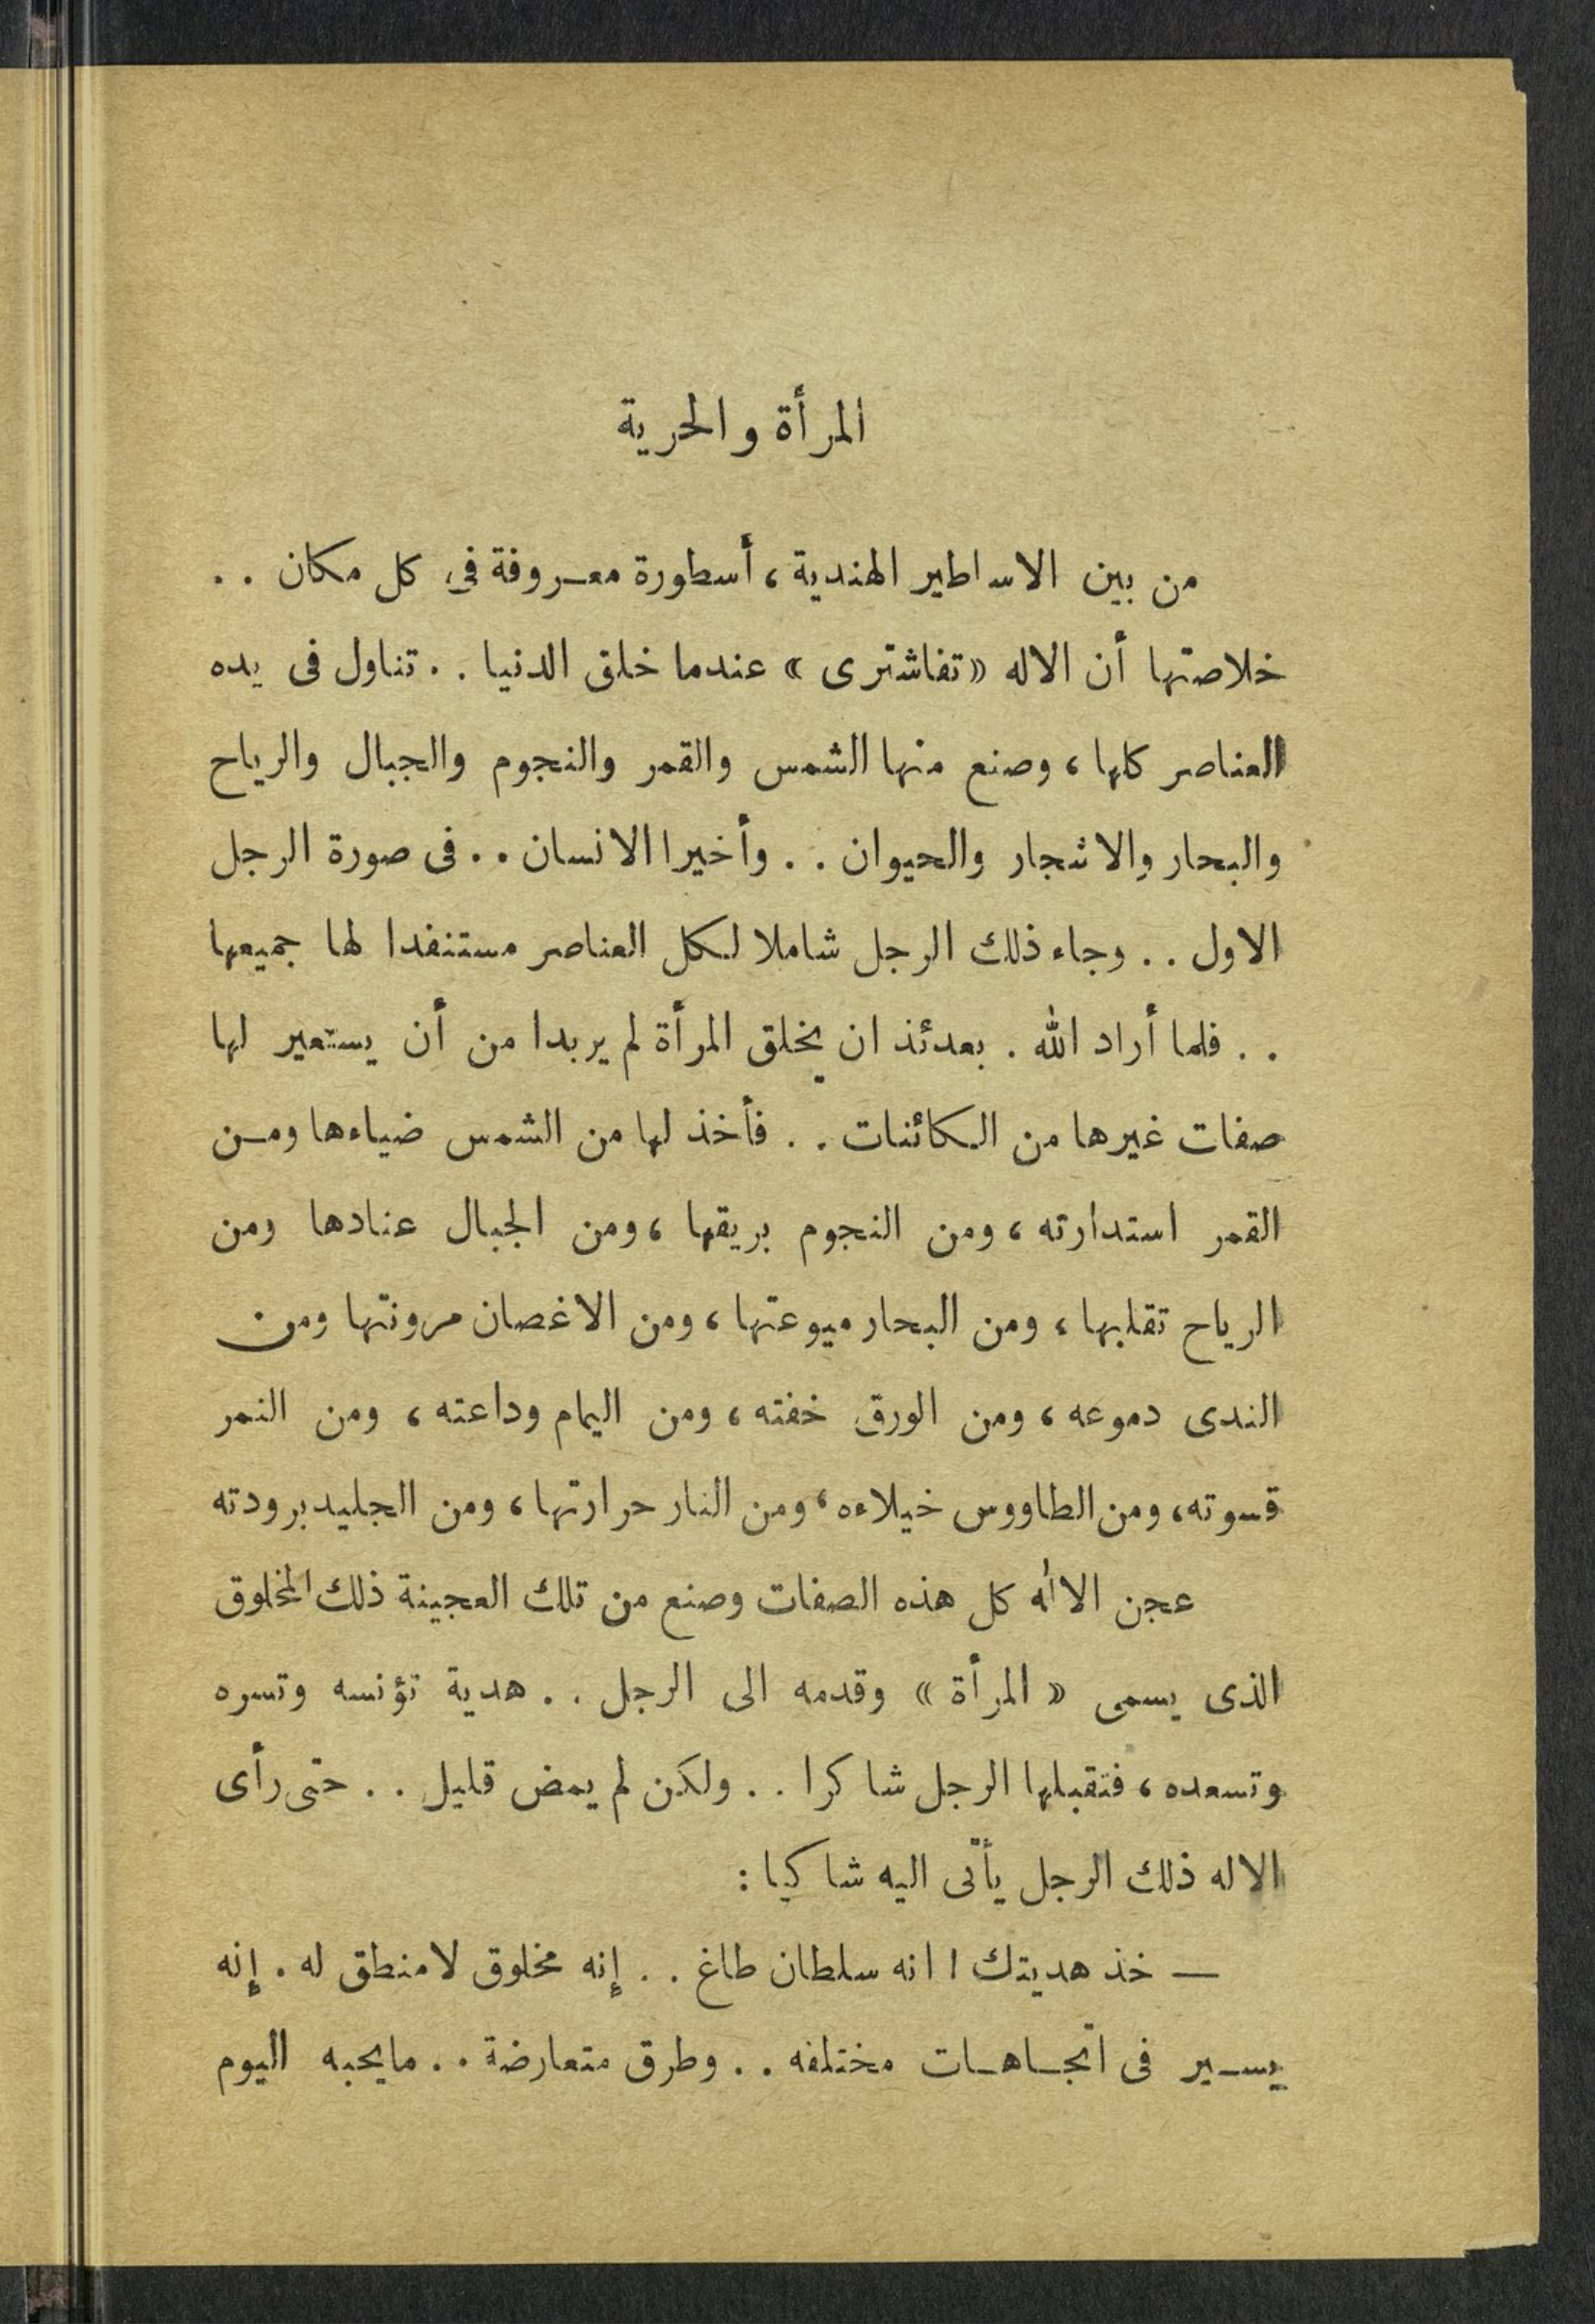 المرأة والحرية
من بين الاساطير الهندية، أسطورة معروفة في كل مكان . .
خلاصتها أن الاله «تفاشترى» عندما خلق الدنيا . . تناول فى يده
العناصر كلها، وصنع منها الشمس والقمر والنجوم والجبال والرياح
والبحار والاشجار والحيوان . . وأخيرا الانسان . . فى صورة الرجل
الاول . . وجاء ذلك الرجل شاملا لكل العناصر مستنفدا لها جميعها
. . فلما أراد الله . بعدئذ ان يخلق المرأة لم ير بدا من أن يستعير لها
صفات غيرها من الكائنات . . فأخذ لها من الشمس ضياءها ومن
القمر استدارته، ومن النجوم بريقها، ومن الجبال عنادها ومن
الرياح تقلبها، ومن البحار ميوعتها، ومن الاغصان مرونتها ومن
الندى دموعه، ومن الورق خفته، ومن اليمام وداعته، ومن النمر
قسوته، ومن الطاووس خيلاءه، ومن النار حرارتها، ومن الجليد برودته
عجن الااله كل هذه الصفات وصنع من تلك العجينة ذلك المخلوق
الذى يسمى «المرأة» وقدمه الى الرجل . . هدية تؤنسه وتسره
وتسعده، فتقبلها الرجل شاكرا . . ولكن لم يمض قليل . . حتى رأى
الاله ذلك الرجل يأتى اليه شاكيا :
— خذ هديتك ! انه سلطان طاغ . . إنه مخلوق لا منطق له . إنه
يسير فى اتجاهات مختلفه . . وطرق متعارضة . . مايحبه اليوم